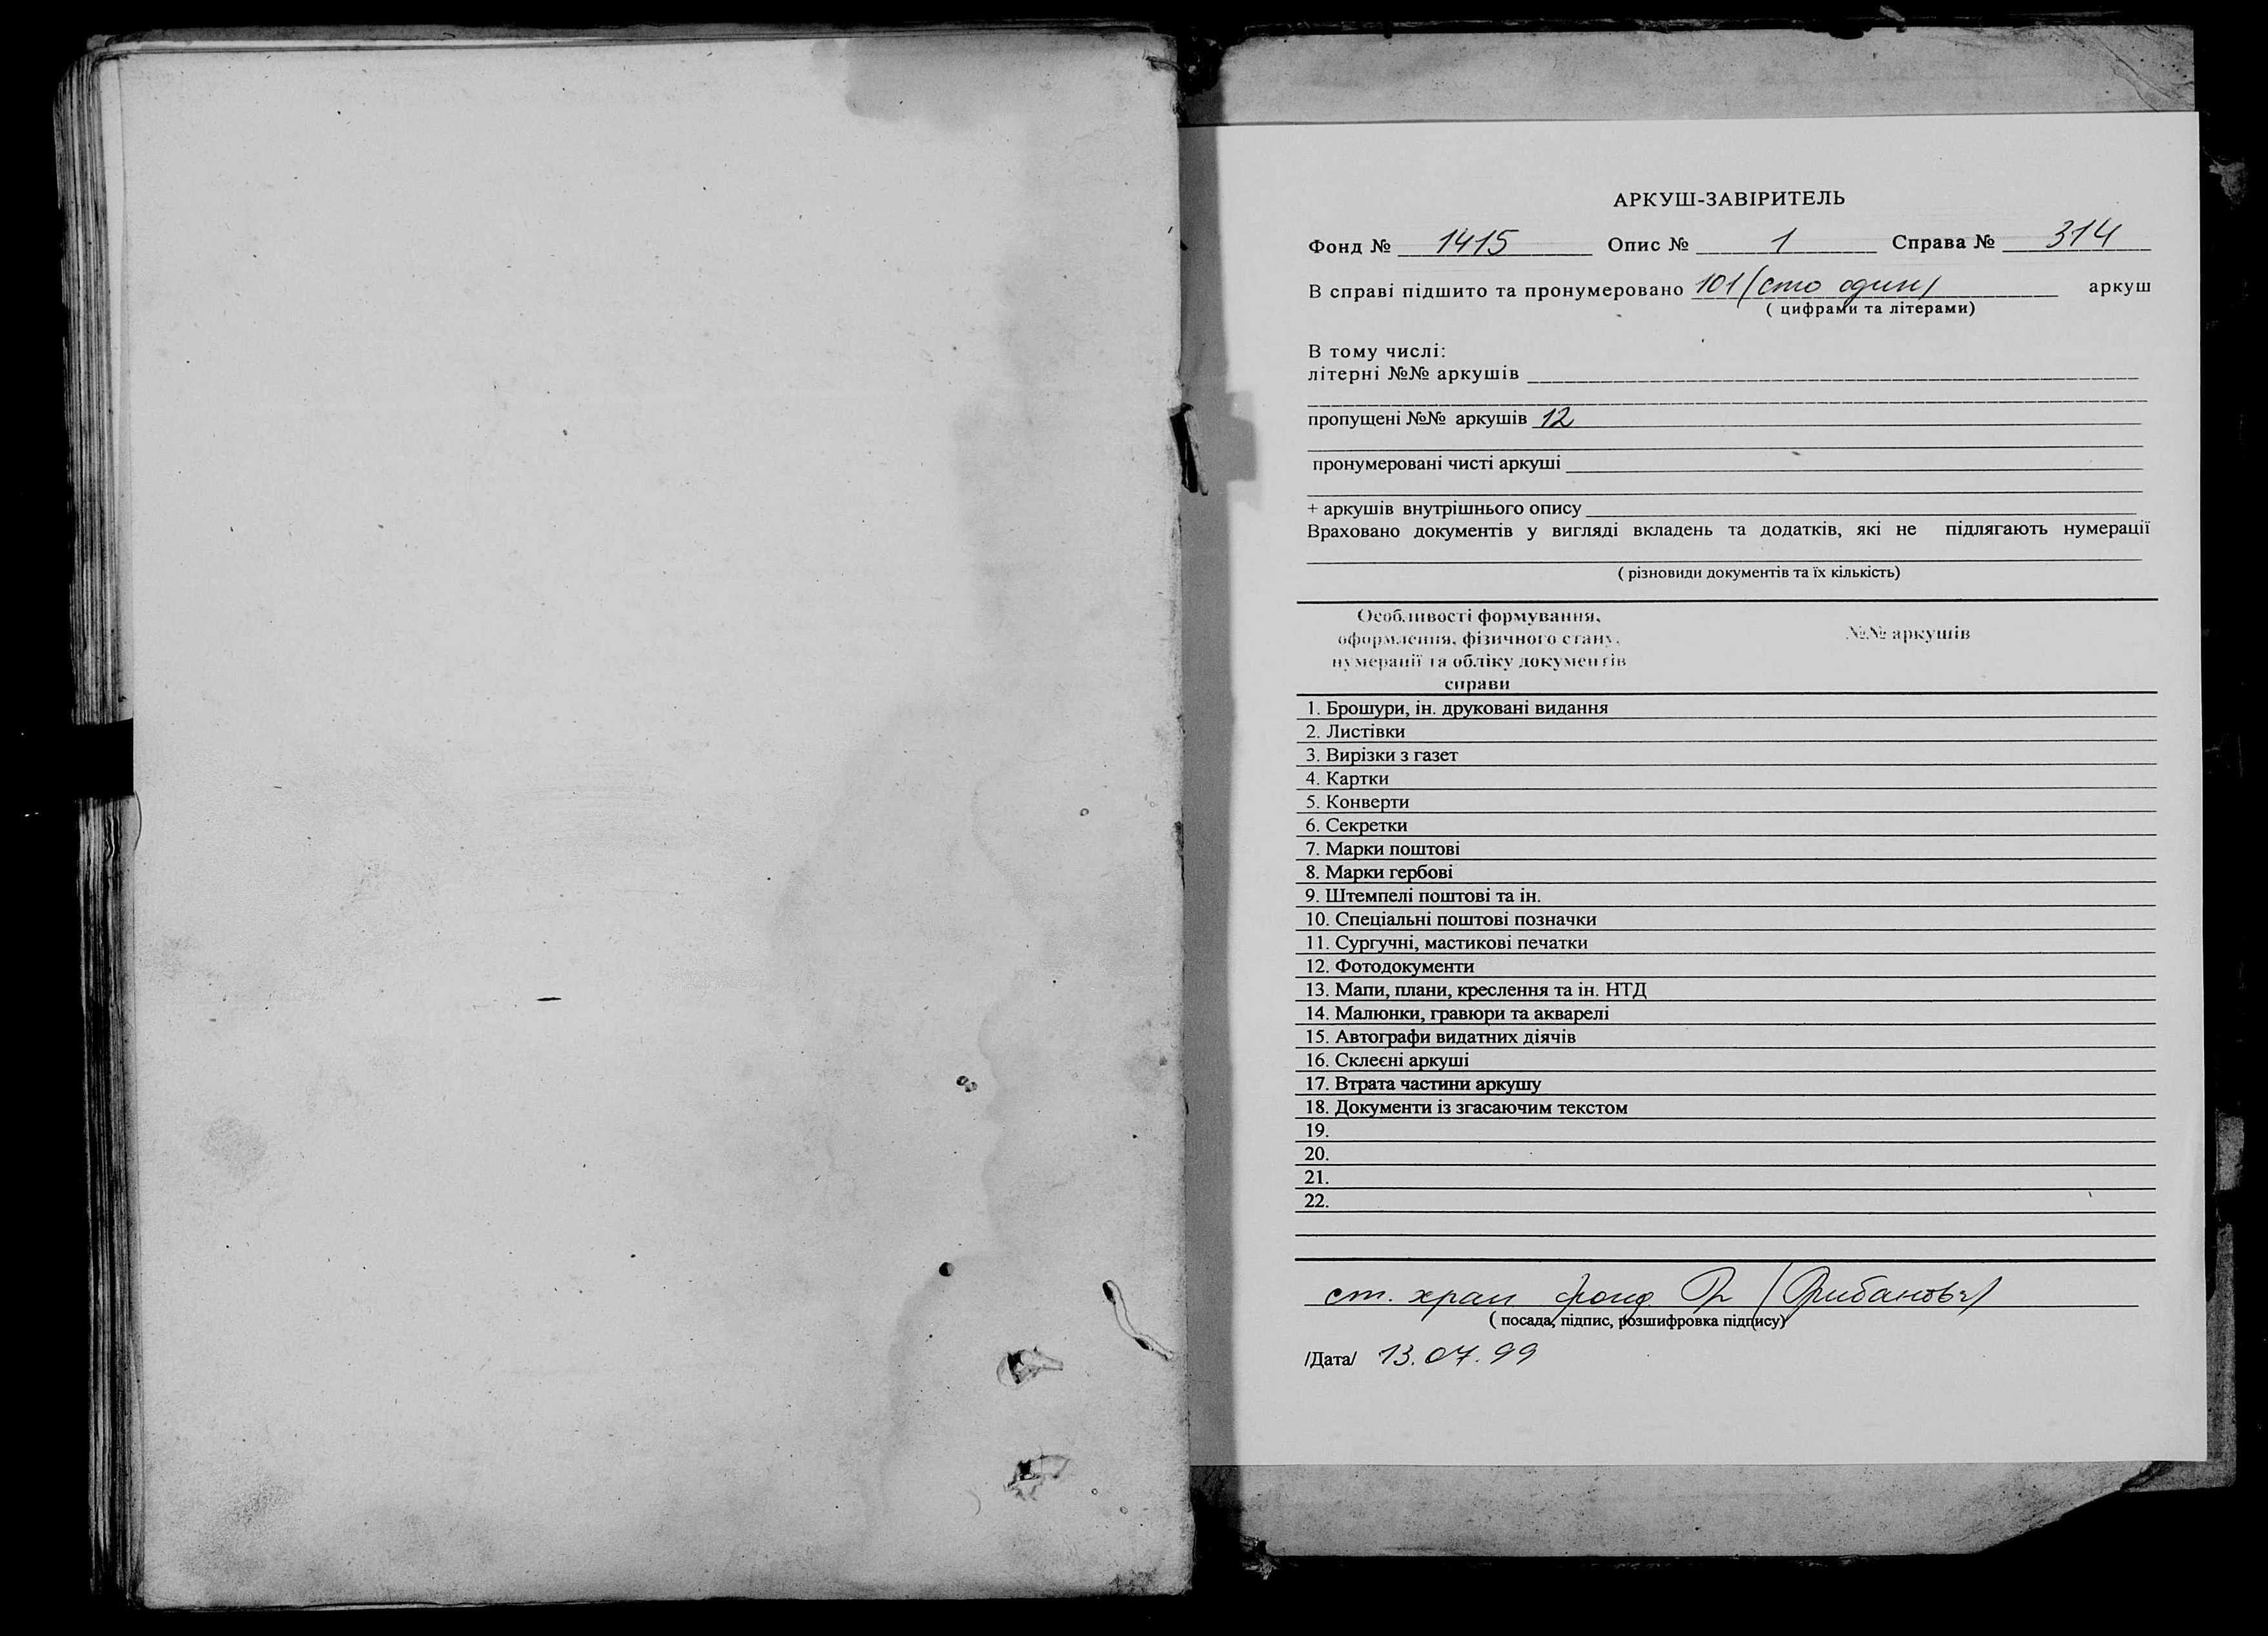 АРКУШ-ЗАВІРИТЕЛЬ
Фонд № 1415 Опис № 1 Справа № 314
В справі підшито та пронумеровано 101 (сто один) аркуш
( цифрами та літерами)
В тому числі:
літерні №№ аркушів
пропущені №№ аркушів 12
пронумеровані чисті аркуші
+ аркушів внутрішнього опису
Враховано документів у вигляді вкладень та додатків, які не підлягають нумерації
( різновиди документів та їх кількість)
Особливості формування,
оформлення, фізичного стану,
№№ аркушів
нумерації та обліку документів
справи
1. Брошури, ін. друковані видання
2. Листівки
3. Вирізки з газет
4. Картки
5. Конверти
6. Секретки
7. Марки поштові
8. Марки гербові
9. Штемпелі поштові та ін.
10. Спеціальні поштові позначки
11. Сургучні, мастикові печатки
12. Фотодокументи
13. Мапи, плани, креслення та ін. НТД
14. Малюнки, гравюри та акварелі
15. Автографи видатних діячів
16. Склеєні аркуші
17. Втрата частини аркушу
18. Документи із згасаючим текстом
19.
20.
21.
22.
ст. хран фонд
( посада, підпис, розшифровка підпису)
/Дата/ 13.07.99